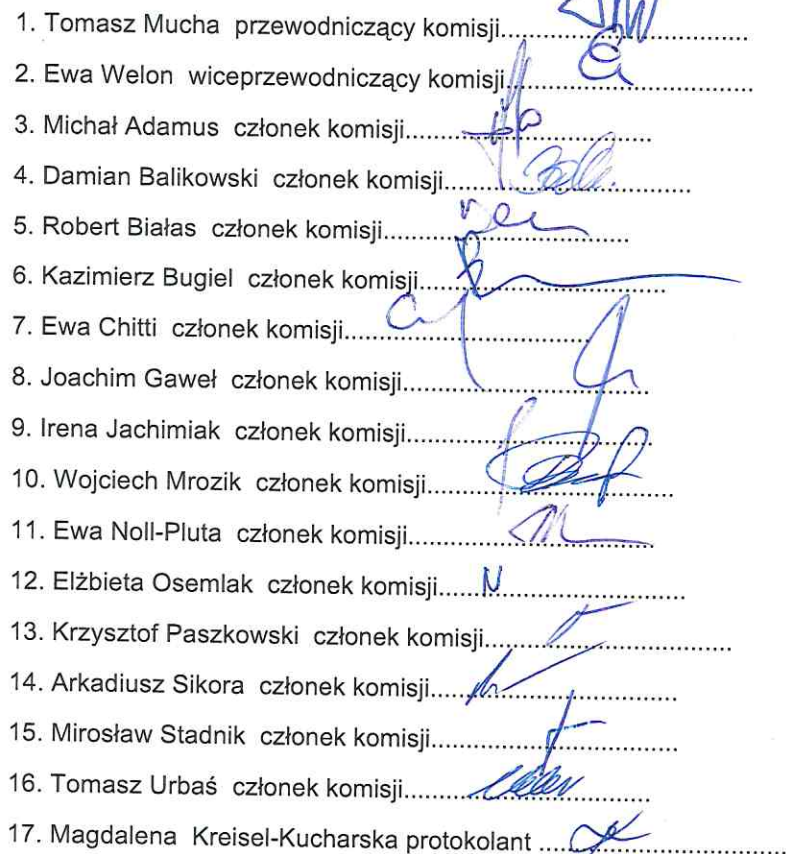 1. Tomasz Mucha przewodniczący komisji
2. Ewa Welon wiceprzewodniczący komisji
3. Michał Adamus członek komisji
4. Damian Balikowski członek komisji
5. Robert Białas członek komisji
6. Kazimierz Bugiel członek komisji
7. Ewa Chitti członek komisji
8. Joachim Gaweł członek komisji
9. Irena Jachimiak członek komisji
10. Wojciech Mrozik członek komisji
11. Ewa Noll-Pluta członek komisji
12. Elżbieta Osemlak członek komisji N
13. Krzysztof Paszkowski członek komisji
14. Arkadiusz Sikora członek komisji
15. Mirosław Stadnik członek komisji
16. Tomasz Urbaś członek komisji
17. Magdalena Kreisel-Kucharska protokolant